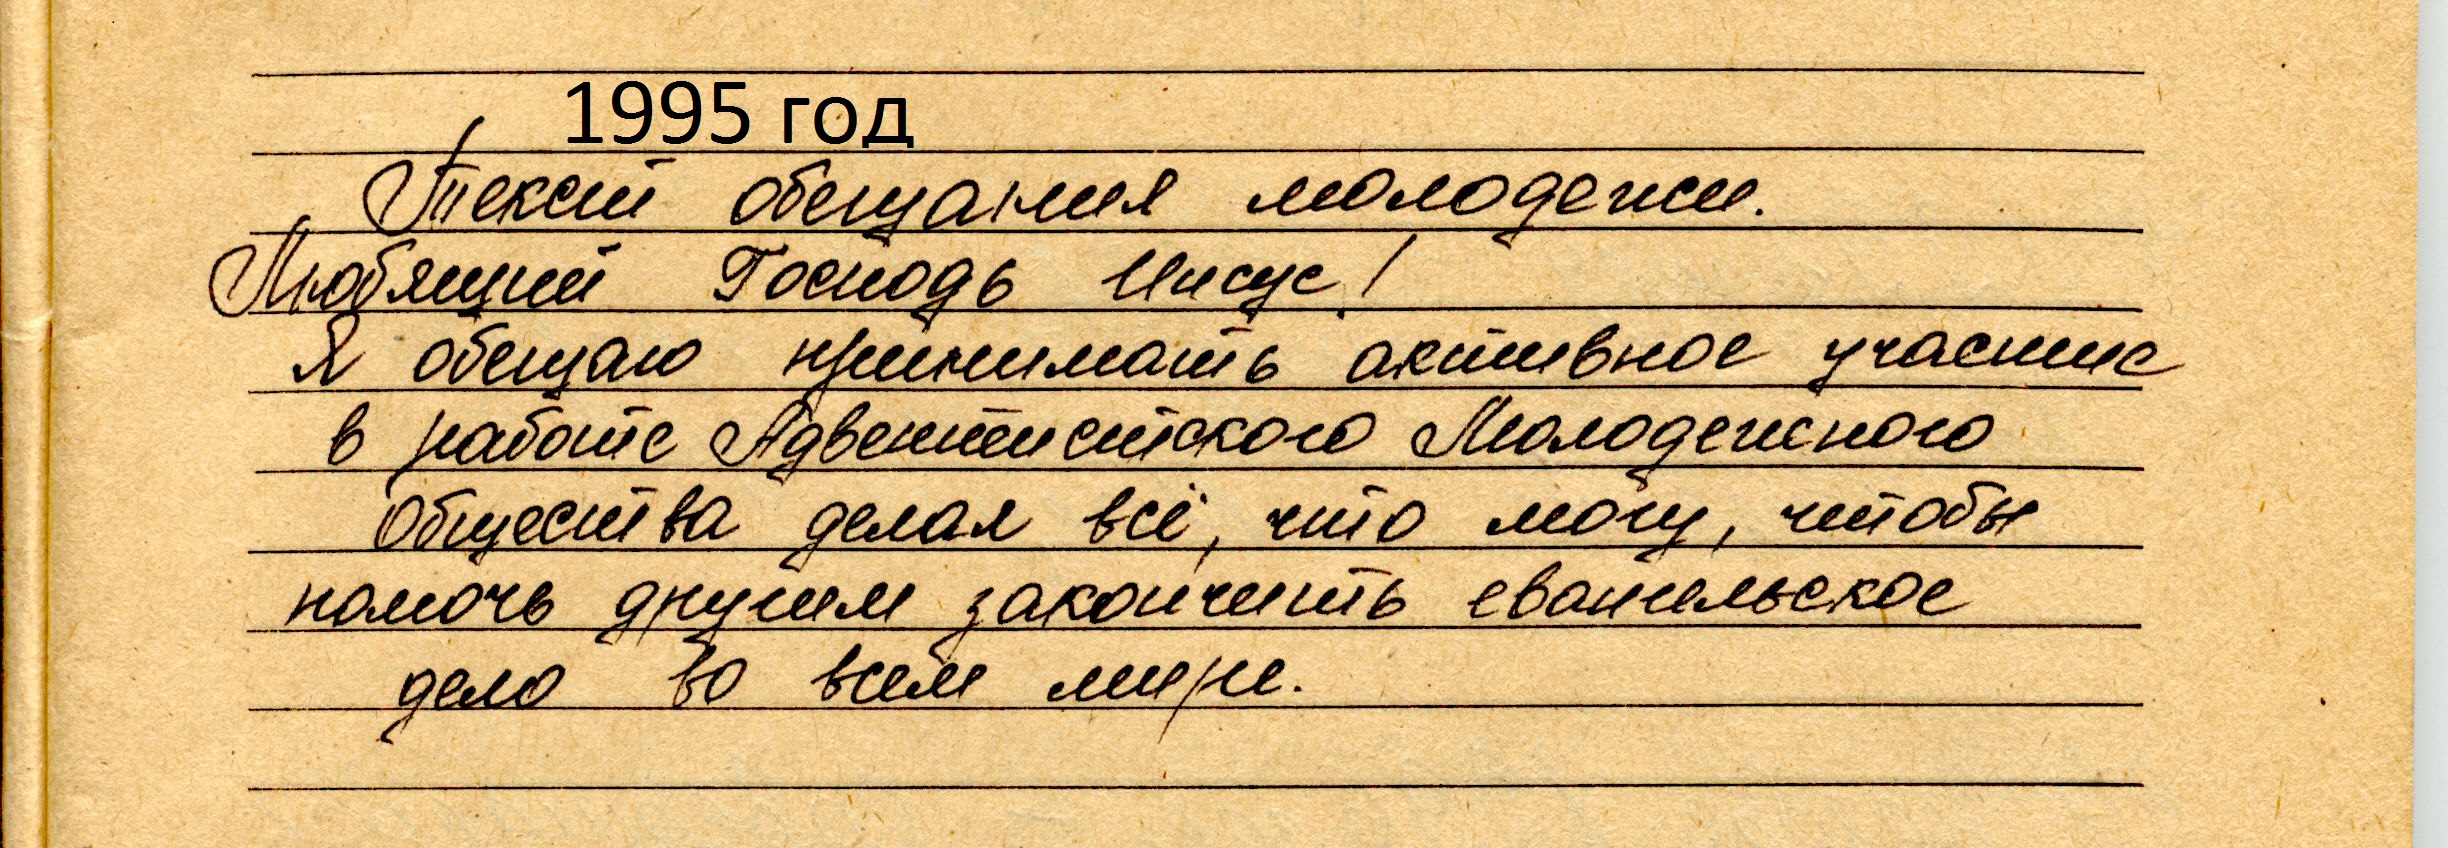 1995 год
Текст обещания молодежи.
Любящий Господь Иисус!
Я обещаю принимать активное участие
в работе Адвентистского Молодежного
Общества делая всё, что могу, чтобы
помочь другим закончить евангельское
дело во всем мире.